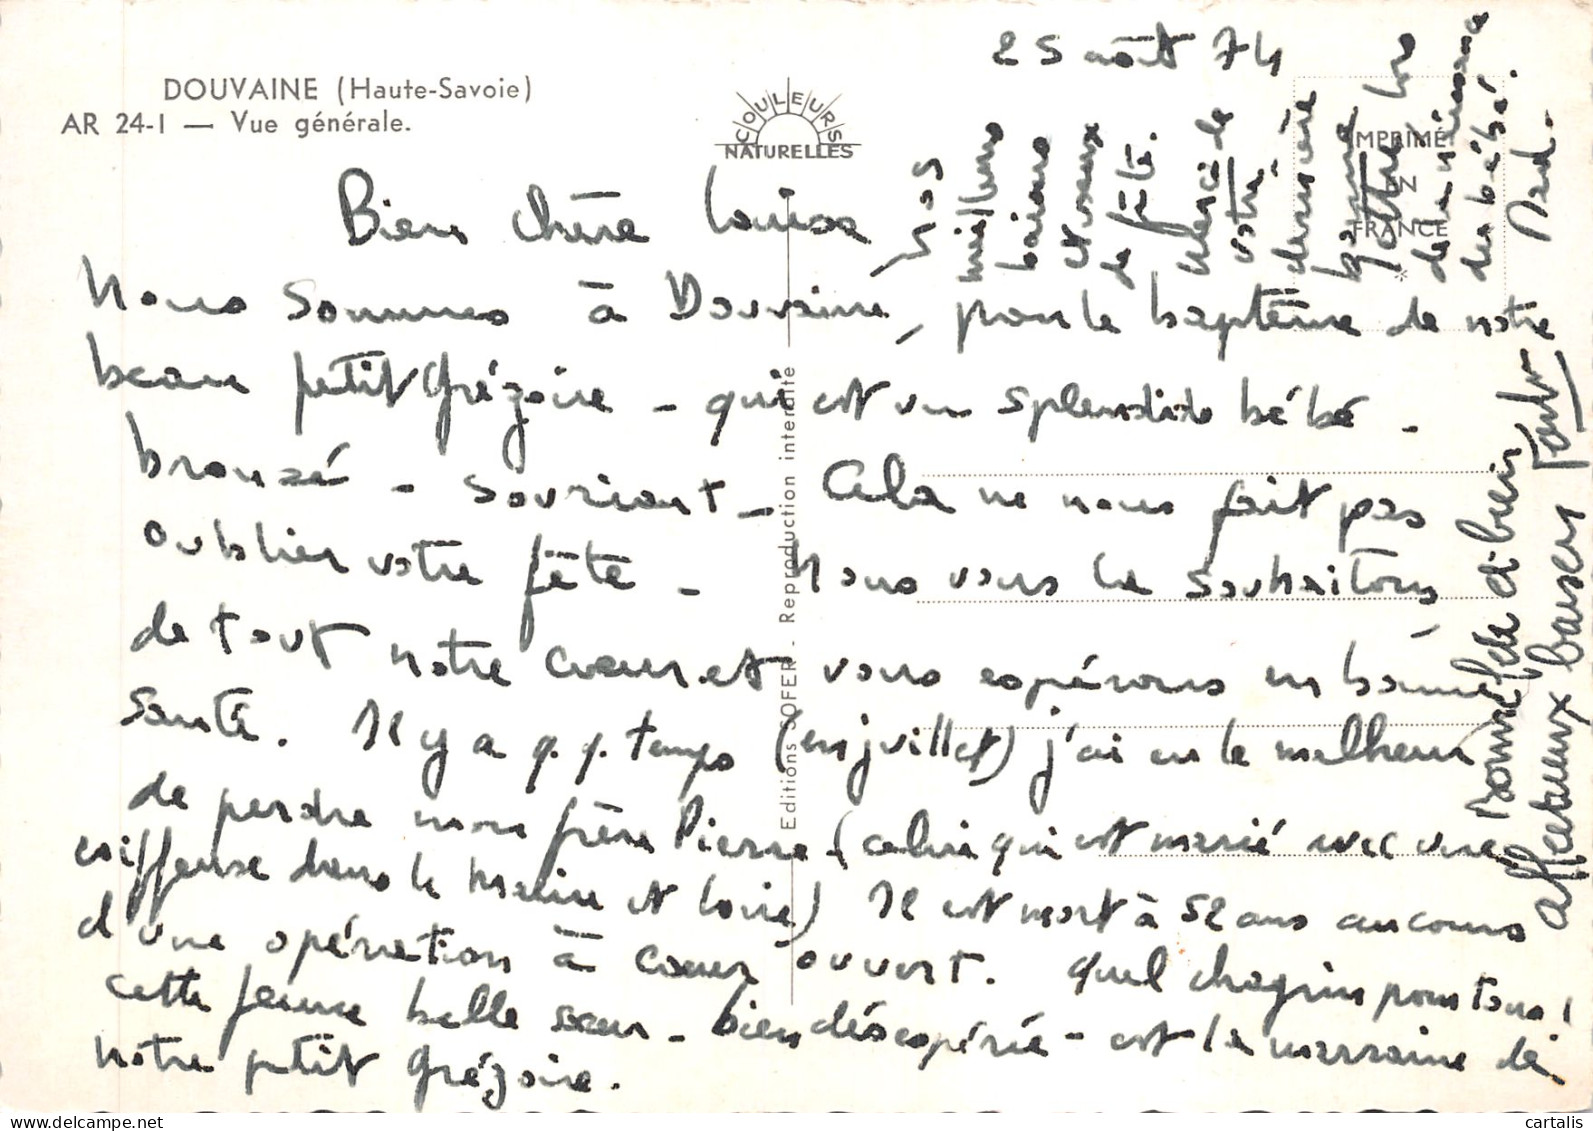 DOUVAINE (Haute-Savoie)
AR 24-1 — Vue générale.
COULEURS
NATURELLES
25 août 74
IMPRIMÉ
EN
FRANCE
*
Editions SOFER - Reproduction interdite
Bien chère Louisa
Nous sommes à Douvaine, pour le baptême de notre
beau petit Grégoire - qui est un splendide bébé -
bronzé - souriant - Cela ne nous fait pas
oublier votre fête - Nous vous la souhaitons,
de tout notre cœur et vous espérons en bonne
santé. Il y a q.q. temps (en juillet) j'ai eu le malheur
de perdre mon frère Pierre - (celui qui est marié avec une
coiffeuse dans le Maine et Loire) Il est mort à 52 ans au cours
d'une opération à cœur ouvert. Quel chagrin pour tous!
cette jeune belle sœur - bien désespérée - est la marraine de
notre petit Grégoire.
Nos
meilleurs
baisers
et vœux
de fête.
Merci de
votre
dernière
bonne
lettre lors
de la naissance
du bébé.
Bonne fête et bien
affectueux baisers